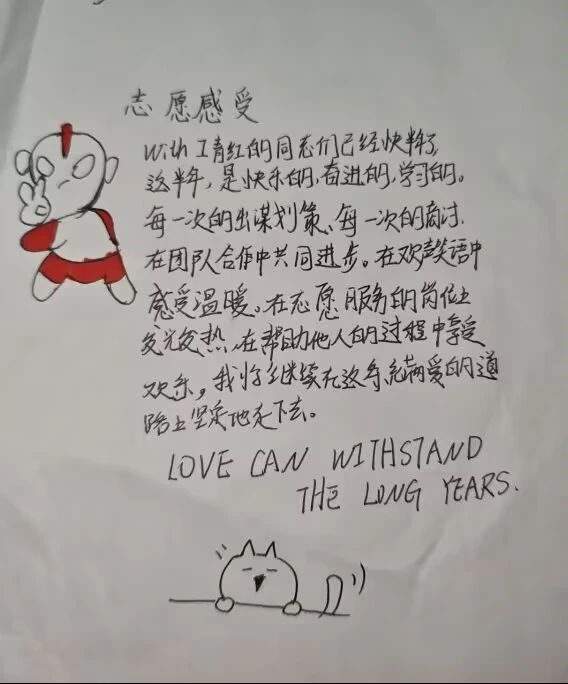 志愿感受
With 工青红的同志们已经快半年了
这半年,是快乐的,奋进的,学习的。
每一次的出谋划策、每一次的商讨.
在团队合作中共同进步。在欢声笑语中
感受温暖。在志愿服务的岗位上
发光发热,在帮助他人的过程中享受
欢乐,我将继续在这条充满爱的道
路上坚定地走下去。
LOVE CAN WITHSTAND
THE LONG YEARS.